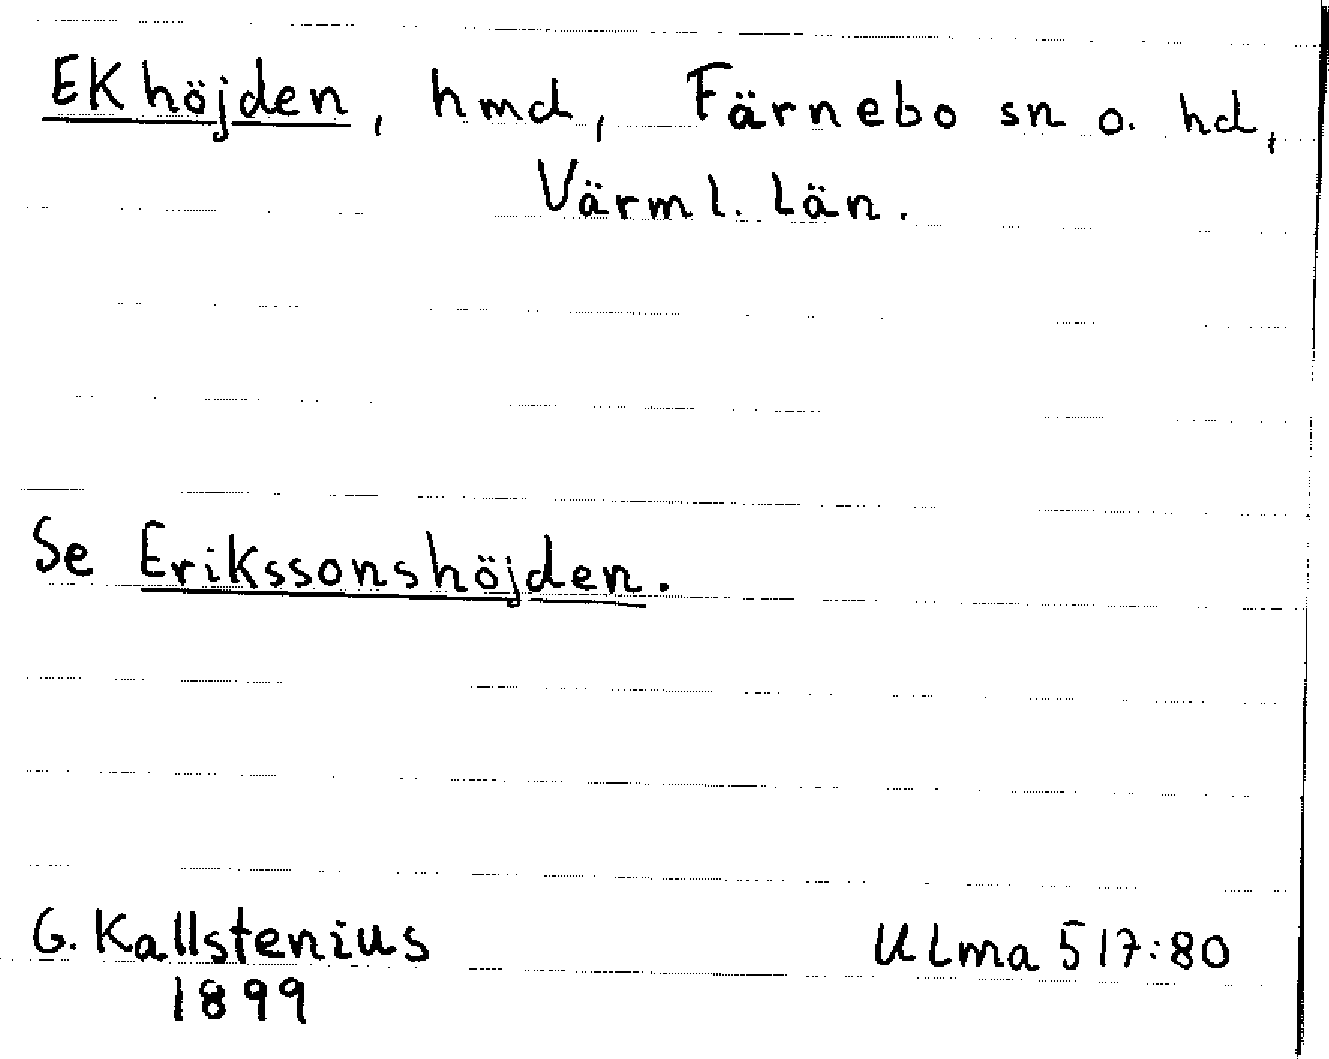 Ekhöjden, hmd, Färnebo sn o. hd,
Värml. län.
Se Erikssonshöjden.
G. Kallstenius
1899
ULma 517:80